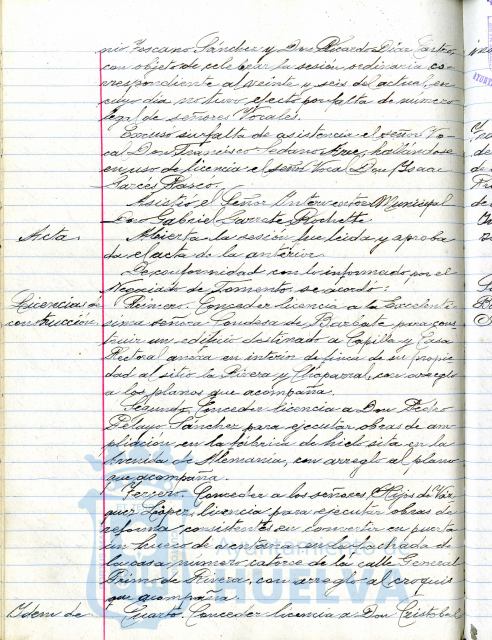 nio Toscano Sánchez y Don Ricardo Díaz Castro,
con objeto de celebrar la sesión ordinaria co-
rrespondiente al veinte y seis del actual, en
cuyo dia no tuvo efecto por falta de numero
legal de señores Vocales.
Excusó su falta de asistencia el señor Vo-
cal Don Francisco Sedano hallándose
en uso de licencia el señor Vocal Don Isaac
Garcés Blasco.
Asistió el Señor Interventor Municipal
Don Gabriel Garrote
Acta. Abierta la sesión fue leida y aproba-
da el acta de la anterior.
De conformidad con lo informado por el
Negociado de Fomento se acordó:
Licencias de Primero. Conceder licencia a la Excelentí-
construcción. sima señora Condesa de Barbate para cons-
truir un edificio destinado a Capilla y Casa
Rectoral en interin de finca de su propie-
dad al sitio la Rivera y Chaparral, con arreglo
a los planos que acompaña.
Segundo. Conceder licencia a Don Pedro
Pelayo Sánchez para ejecutar obras de am-
pliación en la fábrica de hielo sita en la
Avenida de Alemania, con arreglo al plano
que acompaña.
Tercero. Conceder a los señores Hijos de Váz-
quez López, licencia para ejecutar obras de
reforma consistentes en convertir en puerta
un hueco de ventana en la fachada de
la casa numero catorce de la calle General
Primo de Rivera, con arreglo al croquis
que acompaña.
Idem de Cuarto. Conceder licencia a Don Cristobal
Ayuntamiento de
HUELVA